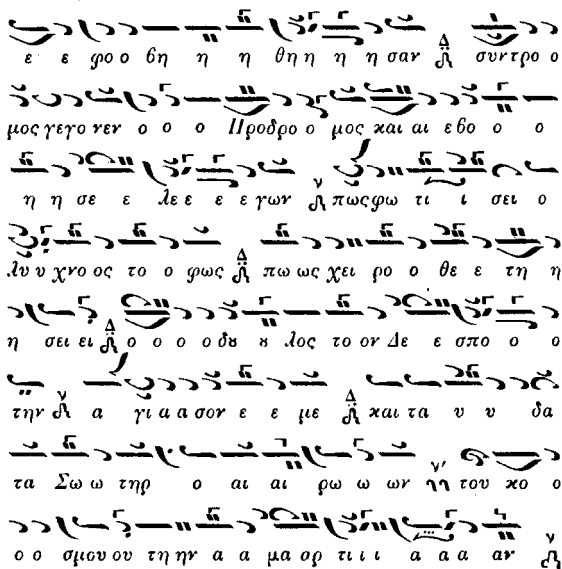 ε ε φο ο βη η η θη η η η σαν Δ συντρο ο
μος γεγο νεν ο ο ο Προδρο ο μος και αι εβο ο ο
η η σε ε λε ε ε ε γων ν πως φω τι ι σει ο
λυ υ χνο ος το ο φως Δ πω ως χει ρο ο θε ε τη η
η σει ει Δ ο ο ο ο δȣ ȣ λος το ον Δε ε σπο ο ο
την ν α γι α α σον ε ε με Δ και τα υ υ δα
τα Σω ω τηρ ο αι αι ρω ω ων ν΄ του κο ο
ο ο σμου ου τη ην α α μα αρ τι ι ι α α α αν ν